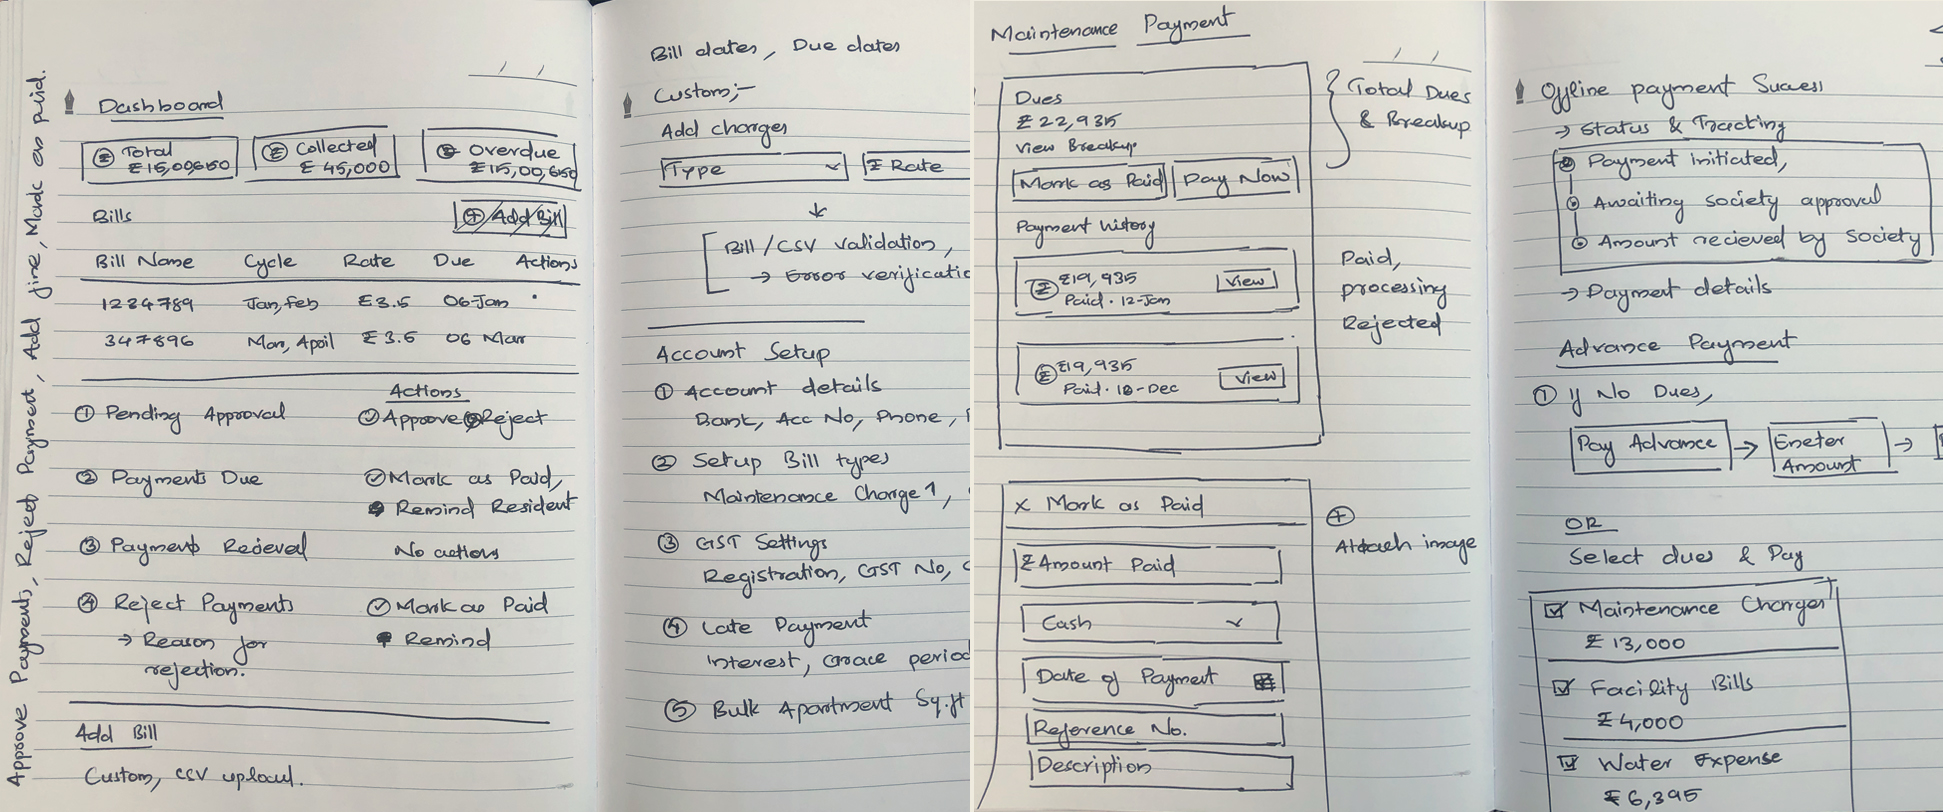 Approve Payments, Reject Payment, Add fine, Mark as paid.
Dashboard
₹ Total
₹15,00,650
₹ Collected
₹ 45,000
Overdue
₹15,00,650
Bills
+ Add Bill
Bill Name Cycle Rate Due Actions
1234789 Jan, Feb ₹3.5 06-Jan
347896 Mar, April ₹3.5 06 Mar
Actions
① Pending Approval Approve Reject
② Payments Due Mark as Paid,
Remind Resident
③ Payments Recieved No actions
④ Reject Payments Mark as Paid
→ Reason for Remind
rejection.
Add Bill
Custom, CSV upload.
Bill dates, Due dates
Custom;-
Add charges
Type ₹ Rate
Bill / CSV validation,
→ Error verificatio
Account Setup
① Account details
Bank, Acc No, Phone,
② Setup Bill types
Maintenance Charge 1,
③ GST Settings
Registration, GST No,
④ Late Payment
Interest, Grace period
⑤ Bulk Apartment Sq.ft
Maintenance Payment
Dues
₹ 22,935
View Breakup
Mark as Paid Pay Now
Total Dues
& Breakup
Payment history
₹19,935
Paid · 12-Jan
View
₹19,935
Paid · 10-Dec
View
Paid,
processing
Rejected
X Mark as Paid
₹ Amount Paid
Cash
Date of Payment
Reference No.
Description
+
Attach image
Offline payment Success
→ Status & Tracking
Payment initiated,
Awaiting society approval
Amount recieved by society
→ Payment details
Advance Payment
① If No Dues,
Pay Advance → Eneter
Amount →
OR
Select dues & Pay
Maintenance Charges
₹ 13,000
Facility Bills
₹ 4,000
Water Expense
₹ 6,395